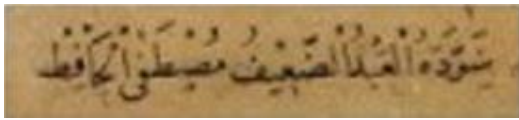 سَوَّدَهُ الْعَبْدُ الضَّعِيْفُ مُصْطَفٰى الْحَافِظ